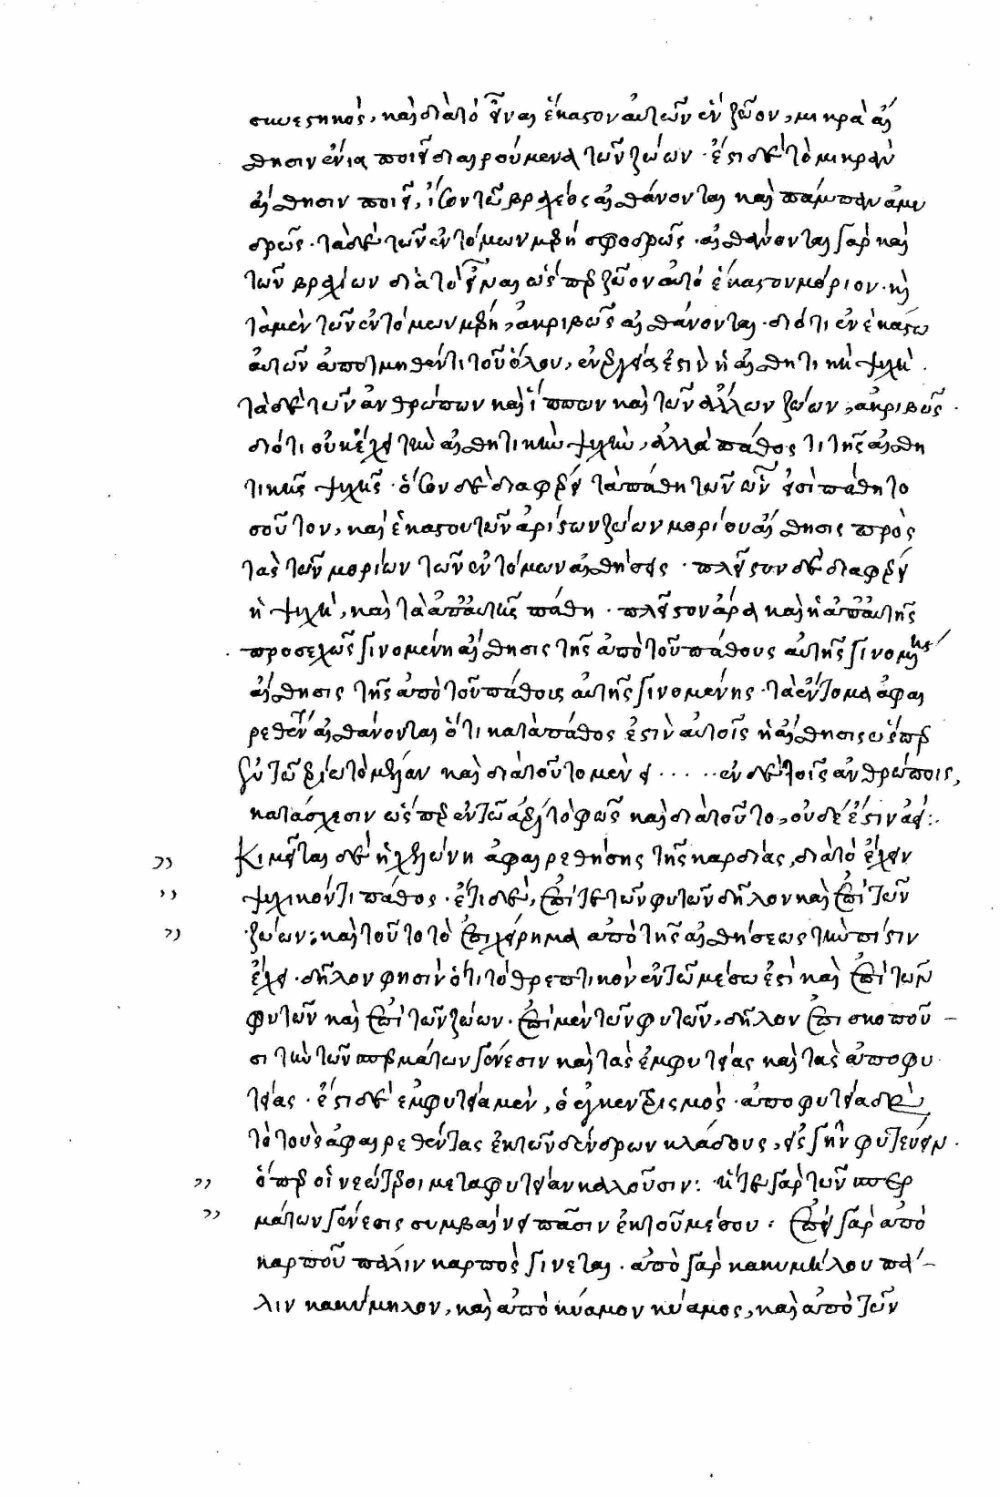 συνεστηκός, καὶ διὰ τὸ εἶναι ἕκαστον αὐτῶν ἓν ζῶον, μικρὰ αἴ
σθησιν ἔνια ποιεῖ διαιρούμενα τῶν ζώων · ἔστι δὲ τὸ μικρὰν
αἴσθησιν ποιεῖ, ἴσον τῶ βραχέος αἰσθάνονται καὶ πάμπαν ἀμυ
δρῶς · τὰ δὲ τῶν ἐντόμων μέρη σφοδρῶς · αἰσθάνονται γὰρ καὶ
τῶν βραχέων διὰ τὸ εἶναι ὥσπερ ζῶον αὐτὸ ἕκαστον μόριον · καὶ
τὰ μὲν τῶν ἐντόμων μέρη, ἀκριβῶς αἰσθάνονται · διότι ἐν ἑκάστω
αὐτῶν ἀποτμηθέντι τοῦ ὅλου, ἐνεργεία ἐστὶν ἡ αἰσθητικὴ ψυχὴ ·
τὰ δὲ τῶν ἀνθρώπων καὶ ἵππων καὶ τῶν ἄλλων ζώων, ἀκριβῶς ·
διότι οὐκ ἔχει τὴν αἰσθητικὴν ψυχὴν, ἀλλὰ πάθος τι τῆς αἰσθη
τικῆς ψυχῆς · ὅσον δὲ διαφέρει τὰ πάθη τῶν ὧν εἰσὶ πάθη το
σοῦτον, καὶ ἑκάστου τῶν ἀρίστων ζώων μορίου αἴσθησις πρὸς
τὰς τῶν μορίων τῶν ἐντόμων αἰσθήσεις · πλεῖστον δὲ διαφέρει
ἡ ψυχὴ, καὶ τὰ ἀπ' αὐτῆς πάθη · πλεῖστον ἄρα καὶ ἡ ἀπ' αὐτῆς
προσεχῶς γινομένη αἴσθησις τῆς ἀπὸ τοῦ πάθους αὐτῆς γινομένης
αἴσθησις τῆς ἀπὸ τοῦ πάθους αὐτῆς γινομένης · τὰ ἔντομα ἀφαι
ρεθὲν αἰσθάνονται ὅτι κατὰ πάθος ἐστὶν αὐτοῖς ἡ αἴσθησις ὥσπερ
καὶ διὰ τοῦτο μὲν · · · · · ἐν δὲ τοῖς ἀνθρώποις,
κατάσχεσιν ὥσπερ ἐν τῶ ἀέρι τὸ φῶς καὶ διὰ τοῦτο, οὐδέ ἐστιν ἀεί :·
Κινεῖται δὲ ἡ χελώνη ἀφαιρεθείσης τῆς καρδίας, διὰ τὸ ἔχειν
ψυχικόν τι πάθος · ἔτι δὲ, ἐπί τε τῶν φυτῶν δῆλον καὶ ἐπὶ τῶν
ζώων : καὶ τοῦτο τὸ ἐπιχείρημα ἀπὸ τῆς αἰσθήσεως τὴν πίστιν
ἔχει · δῆλον φησὶν ὅτι τὸ θρεπτικὸν ἐν τῶ μέσω ἐστὶ καὶ ἐπὶ τῶν
φυτῶν καὶ ἐπὶ τῶν ζώων · ἐπὶ μὲν τῶν φυτῶν, δῆλον ἐπισκοποῦ –
σι τὴν τῶν σπερμάτων γένεσιν καὶ τὰς ἐμφυτείας καὶ τὰς ἀποφυ
τείας · ἔστι δὲ ἐμφυτεία μὲν, ὁ ἐγκεντρισμὸς · ἀποφυτεία δὲ
τὸ τοὺς ἀφαιρεθέντας ἐκ τῶν δένδρων κλάδους, εἰς γῆν φυτεύειν ·
ὅπερ οἱ νεώτεροι μεταφυτείαν καλοῦσιν : ἥ τε γὰρ τῶν σπερ
μάτων γένεσις συμβαίνει πᾶσιν ἐκ τοῦ μέσου : ἐπεὶ γὰρ ἀπὸ
καρποῦ πάλιν καρπὸς γίνεται · ἀπὸ γὰρ κακυμήλου πά –
λιν κακύμηλον, καὶ ἀπὸ κύαμον κύαμος, καὶ ἀπὸ τῶν